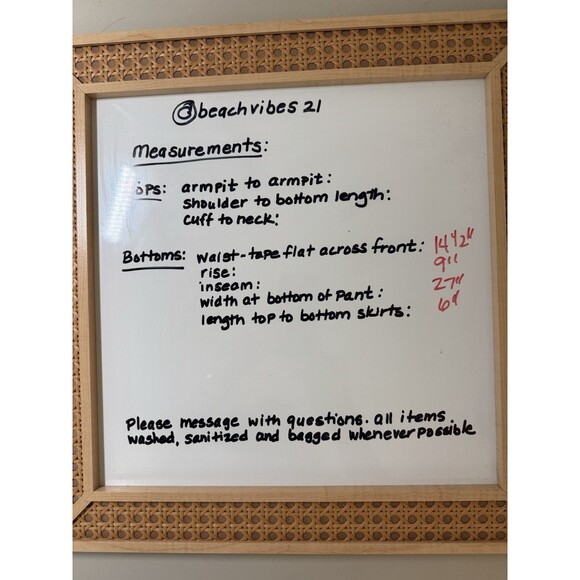 @beachvibes 21
Measurements:
Tops: armpit to armpit:
shoulder to bottom length:
cuff to neck:
Bottoms: waist-tape flat across front: 14 1/2"
rise: 9"
inseam: 27"
width at bottom of pant: 6"
length top to bottom skirts:
Please message with questions. all items
washed, sanitized and bagged whenever possible